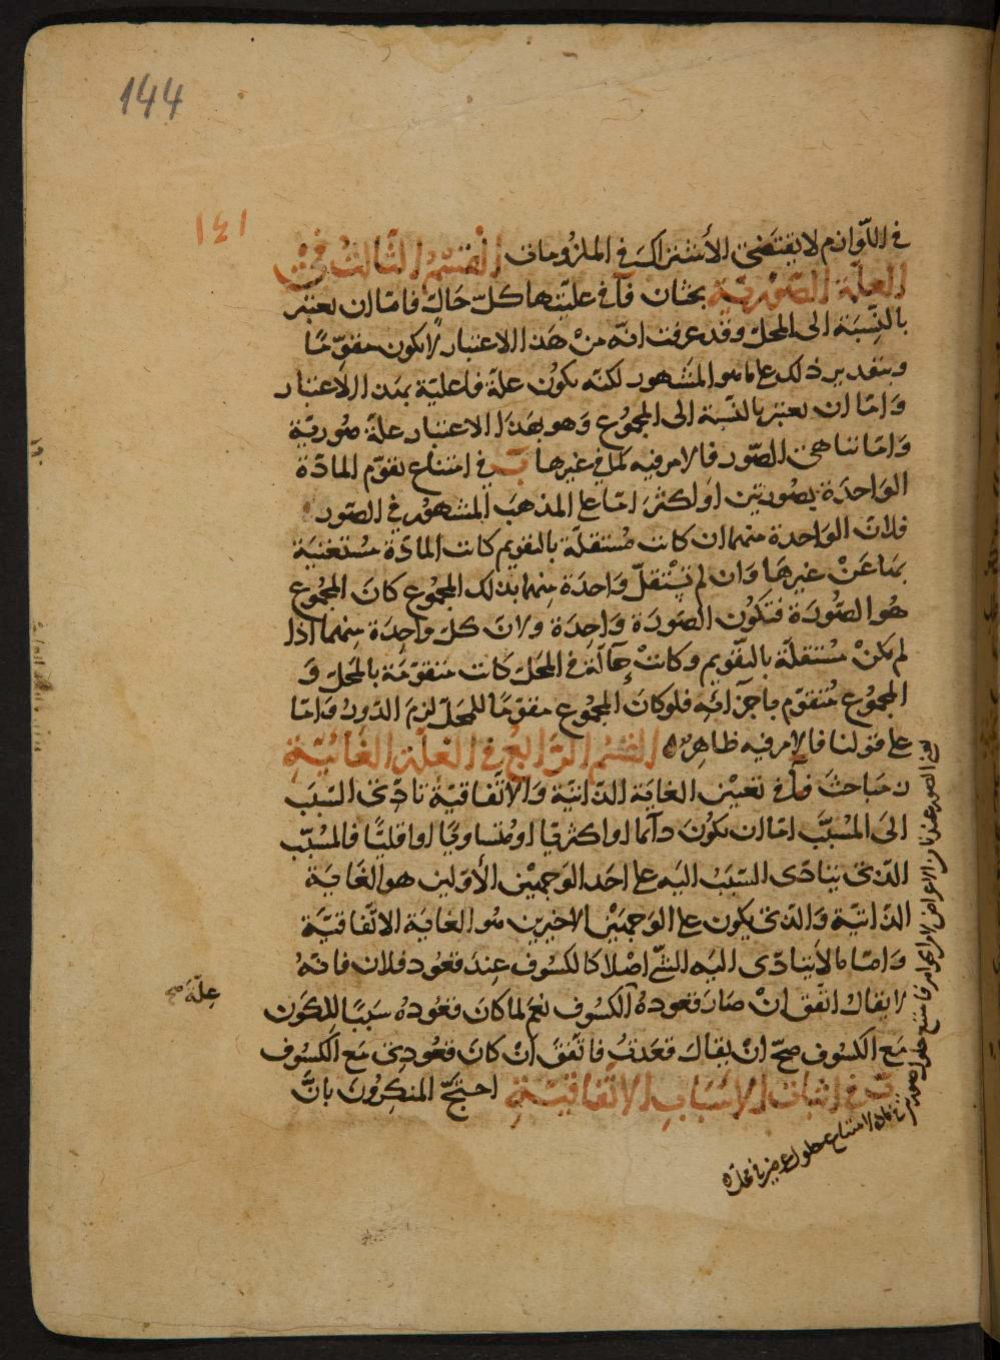 144
١٤١
في اللوازم لا يقتضى الاشتراك في الملزومات القسم الثالث في
العلة الصورية بحثان فآ في عليتها كل حال فاما ان يعتبر
بالنسبة الى المحل وقد عرفت انه من هذا الاعتبار لا يكون مقوما
وبتقدير ذلك على ما هو المشهور لكنه يكون علة فاعلية بهذا الاعتبار
واما ان يعتبر بالنسبة الى المجموع وهو بهذا الاعتبار علة صورية
واما تناهى الصور فالامر فيه كما في غيرها ب في امتناع تقوم المادة
الواحدة بصورتين او اكثر اما على المذهب المشهور في الصور
فلان الواحدة منهما ان كانت مستقلة بالتقويم كانت المادة مستغنية
بها عن غيرها وان لم تستقل واحدة منهما بذلك المجموع كان المجموع
هو الصورة فتكون الصورة واحدة ولان كل واحدة منهما اذا
لم يكن مستقلة بالتقويم وكانت حالة في المحل كانت متقومة بالمحل و
المجموع متقوم باجزائه فلو كان المجموع مقوما للمحل لزم الدور واما
على قولنا فالامر فيه ظاهر القسم الرابع في العلة الغائية
ن مباحث فآ في تعيين الغاية الذاتية والاتفاقية تادى السبب
الى المسبب اما ان يكون دآئما او اكثريا او متساويا او اقليا فالمسبب
الذى يتادى السبب اليه على احد الوجهين الأولين هو الغاية
الذاتية والذى يكون على الوجهين الاخيرين هو الغاية الاتفاقية
واما ما لا يتادى اليه الشئ اصلا كالكسوف عند قعود فلان فانه
لا يقال اتفق ان صار قعوده الكسوف نعم لما كان قعوده سببا للكون
مع الكسوف صح ان يقال قعدت فاتفق ان كان قعودى مع الكسوف
ب في اثبات الاسباب الاتفاقية احتج المنكرون بان
علة صح
امتناع حلول عرضين في محل